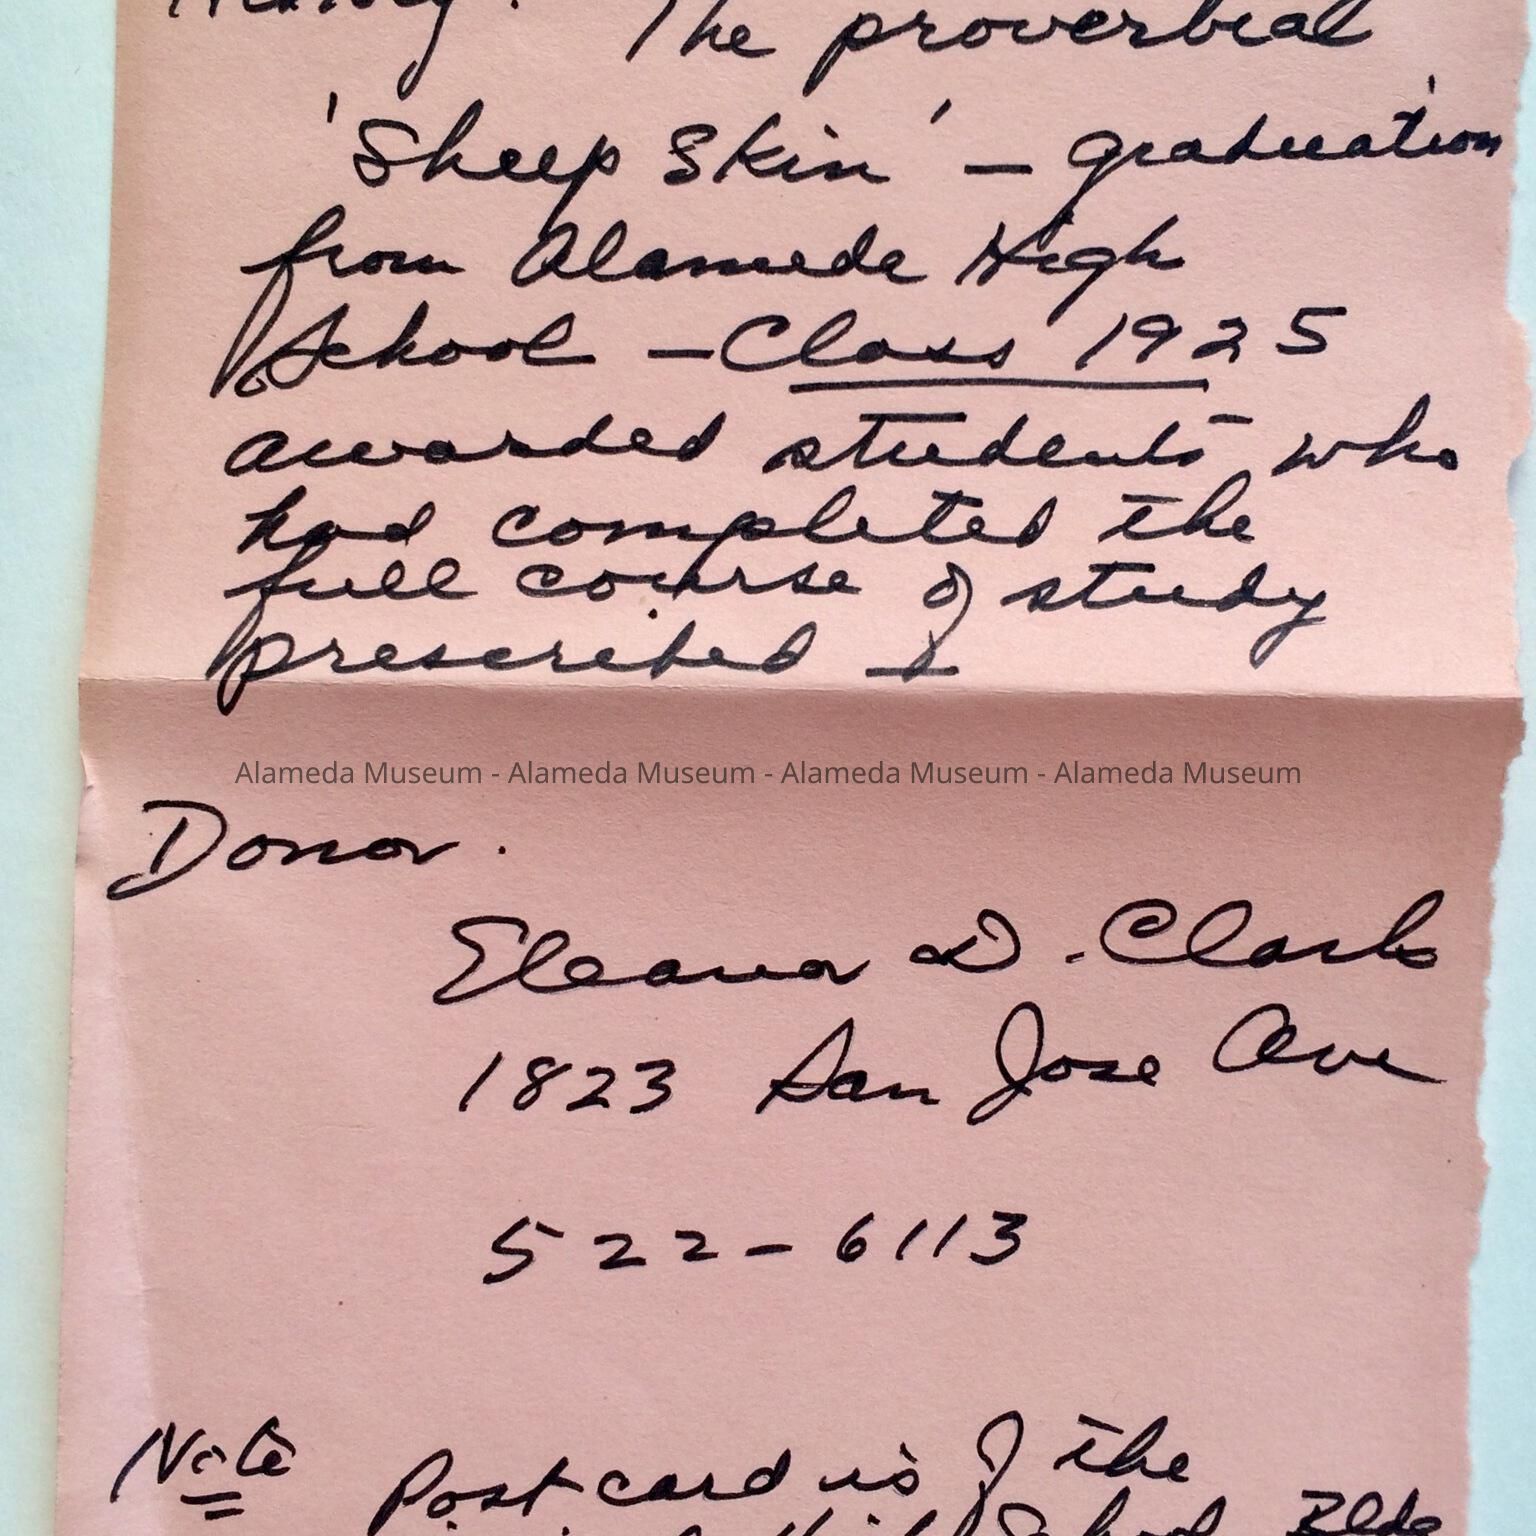 History. The proverbial
'Sheep Skin' – graduation
from Alameda High
School – Class 1925
awarded students who
had completed the
full course of study
prescribed
Alameda Museum - Alameda Museum - Alameda Museum - Alameda Museum
Donor.
Eleanor D. Clark
1823 San Jose Ave
522-6113
Note Post card is of the
High School Bldg